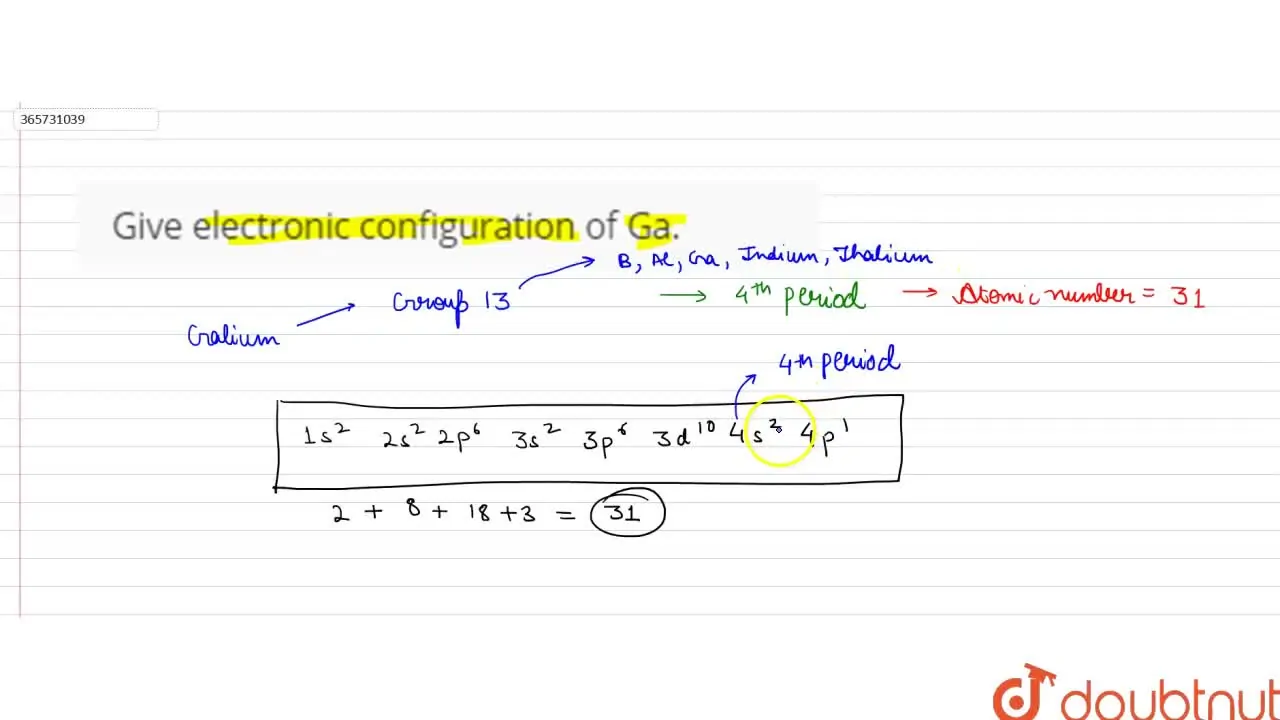 365731039
Give electronic configuration of Ga.
B, Al, Ga, Indium, Thalium
Group 13 → 4th period → Atomic number = 31
Galium
4th period
1s² 2s² 2p⁶ 3s² 3p⁶ 3d¹⁰ 4s² 4p¹
2 + 8 + 18 + 3 = 31
doubtnut